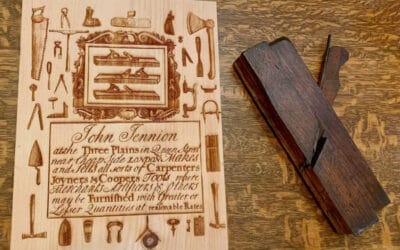 John Jennion
at the Three Plains in Queen Street
near Cheapside London, Makes
and Sells all sorts of Carpenters
Joyners & Coopers Tools where
Merchants Artificers & Others
may be Furnished with Greater or
Lesser Quantities at reasonable Rates